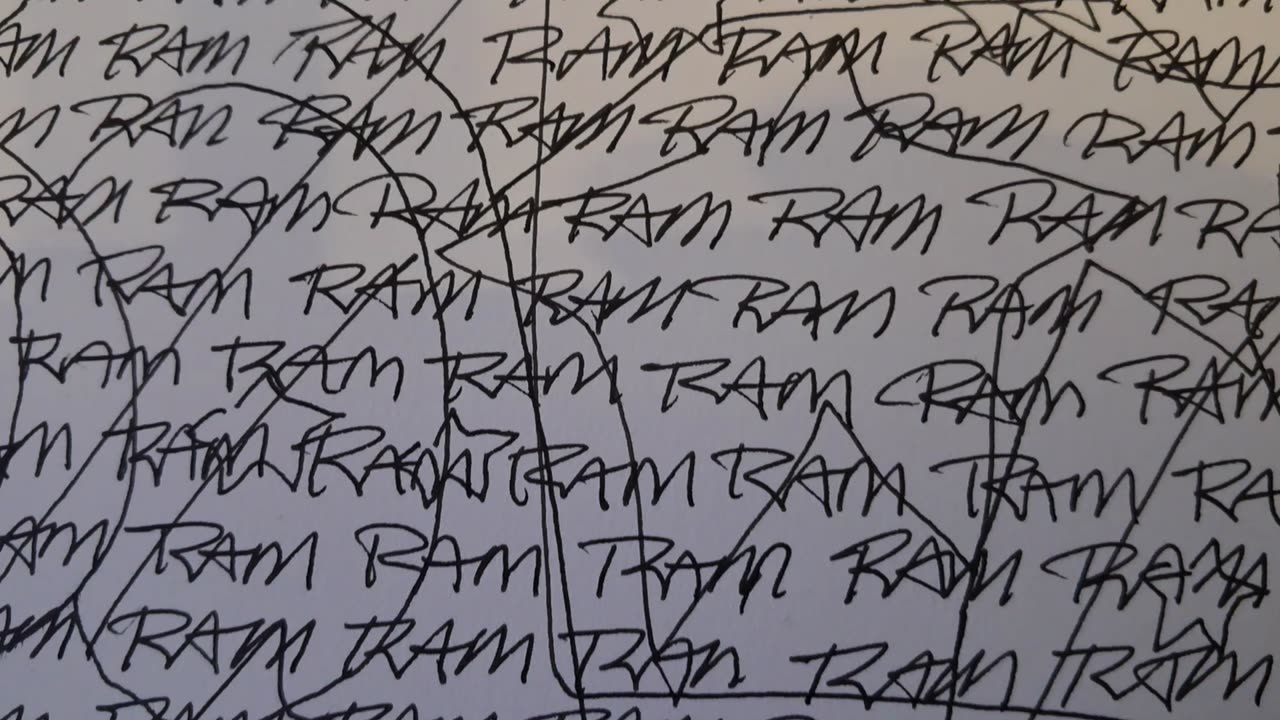 RAM RAM RAM RAM RAM RAM
RAM RAM RAM RAM RAM RAM
RAM RAM RAM RAM RAM RAM
RAM RAM RAM RAM RAM
RAM RAM RAM RAM RAM RAM
RAM RAM RAM RAM RAM
RAM RAM RAM RAM RAM
RAM RAM RAM RAM RAM